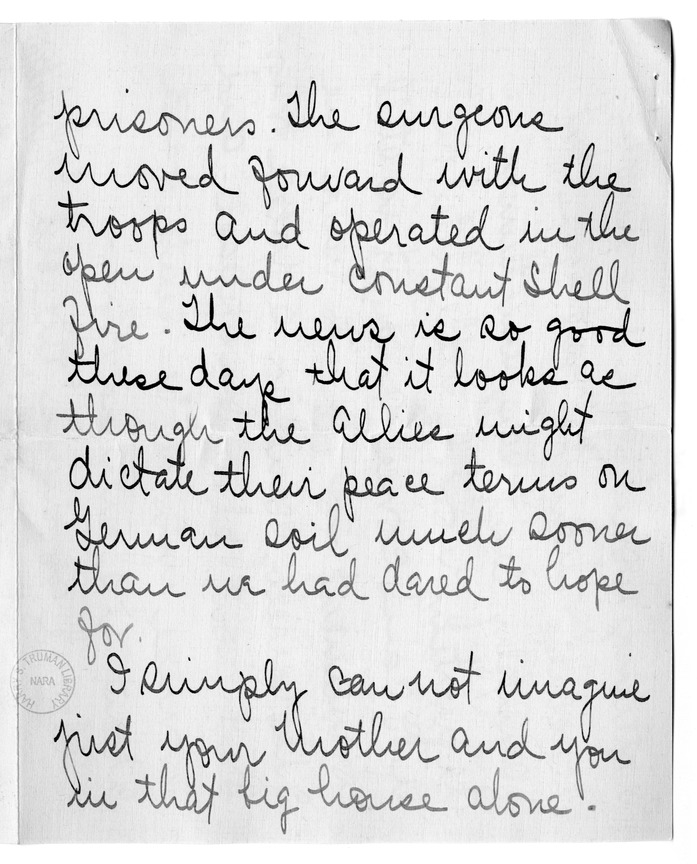 prisoners. The surgeons
moved forward with the
troops and operated in the
open under constant shell
fire. The news is so good
these days that it looks as
though the Allies might
dictate their peace terms on
German soil much sooner
than we had dared to hope
for.
I simply can not imagine
just your Mother and you
in that big house alone.
HARRY S. TRUMAN LIBRARY
NARA